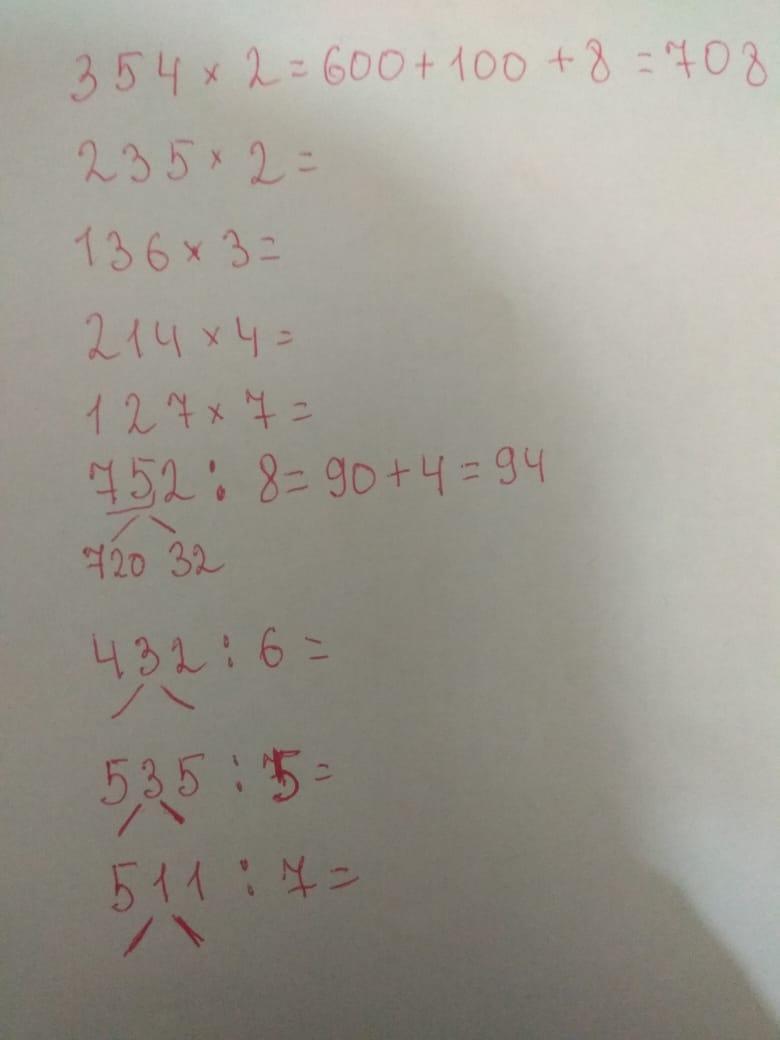 354 × 2 = 600 + 100 + 8 = 708
235 × 2 =
136 × 3 =
214 × 4 =
127 × 7 =
752 : 8 = 90 + 4 = 94
720 32
432 : 6 =
535 : 5 =
511 : 7 =